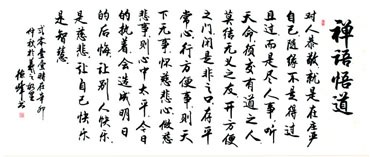 禅语悟道
对人恭敬就是在庄严
自己随缘不是得过
且过而是尽人事听
天命须交有道之人
莫结无义之友开方便
之门闲是非之口存平
常心行方便事则天
下无事怀慈悲心做慈
悲事则心中太平今日
的执着会造成明日
的后悔让别人快乐
是慈悲让自己快乐
是智慧
时在辛卯